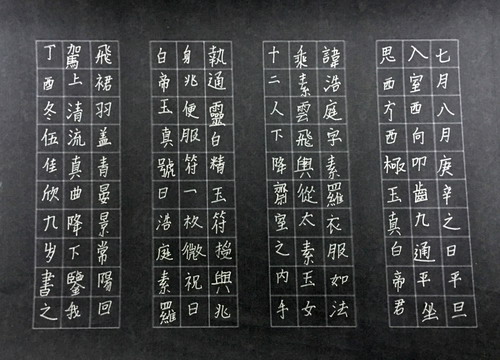 七月八月庚辛之日平旦
入室西向叩齒九通平坐
思西方西極玉真白帝君
諱浩庭字素羅衣服如法
乘素雲飛輿從太素玉女
十二人下降齋室之内手
執通靈白精玉符授與兆
身兆便服符一枚微祝曰
白帝玉真號曰浩庭素羅
飛裙羽蓋青晏景常陽回
駕上清流真曲降下鑒我
丁酉冬伍佳欣九岁書之